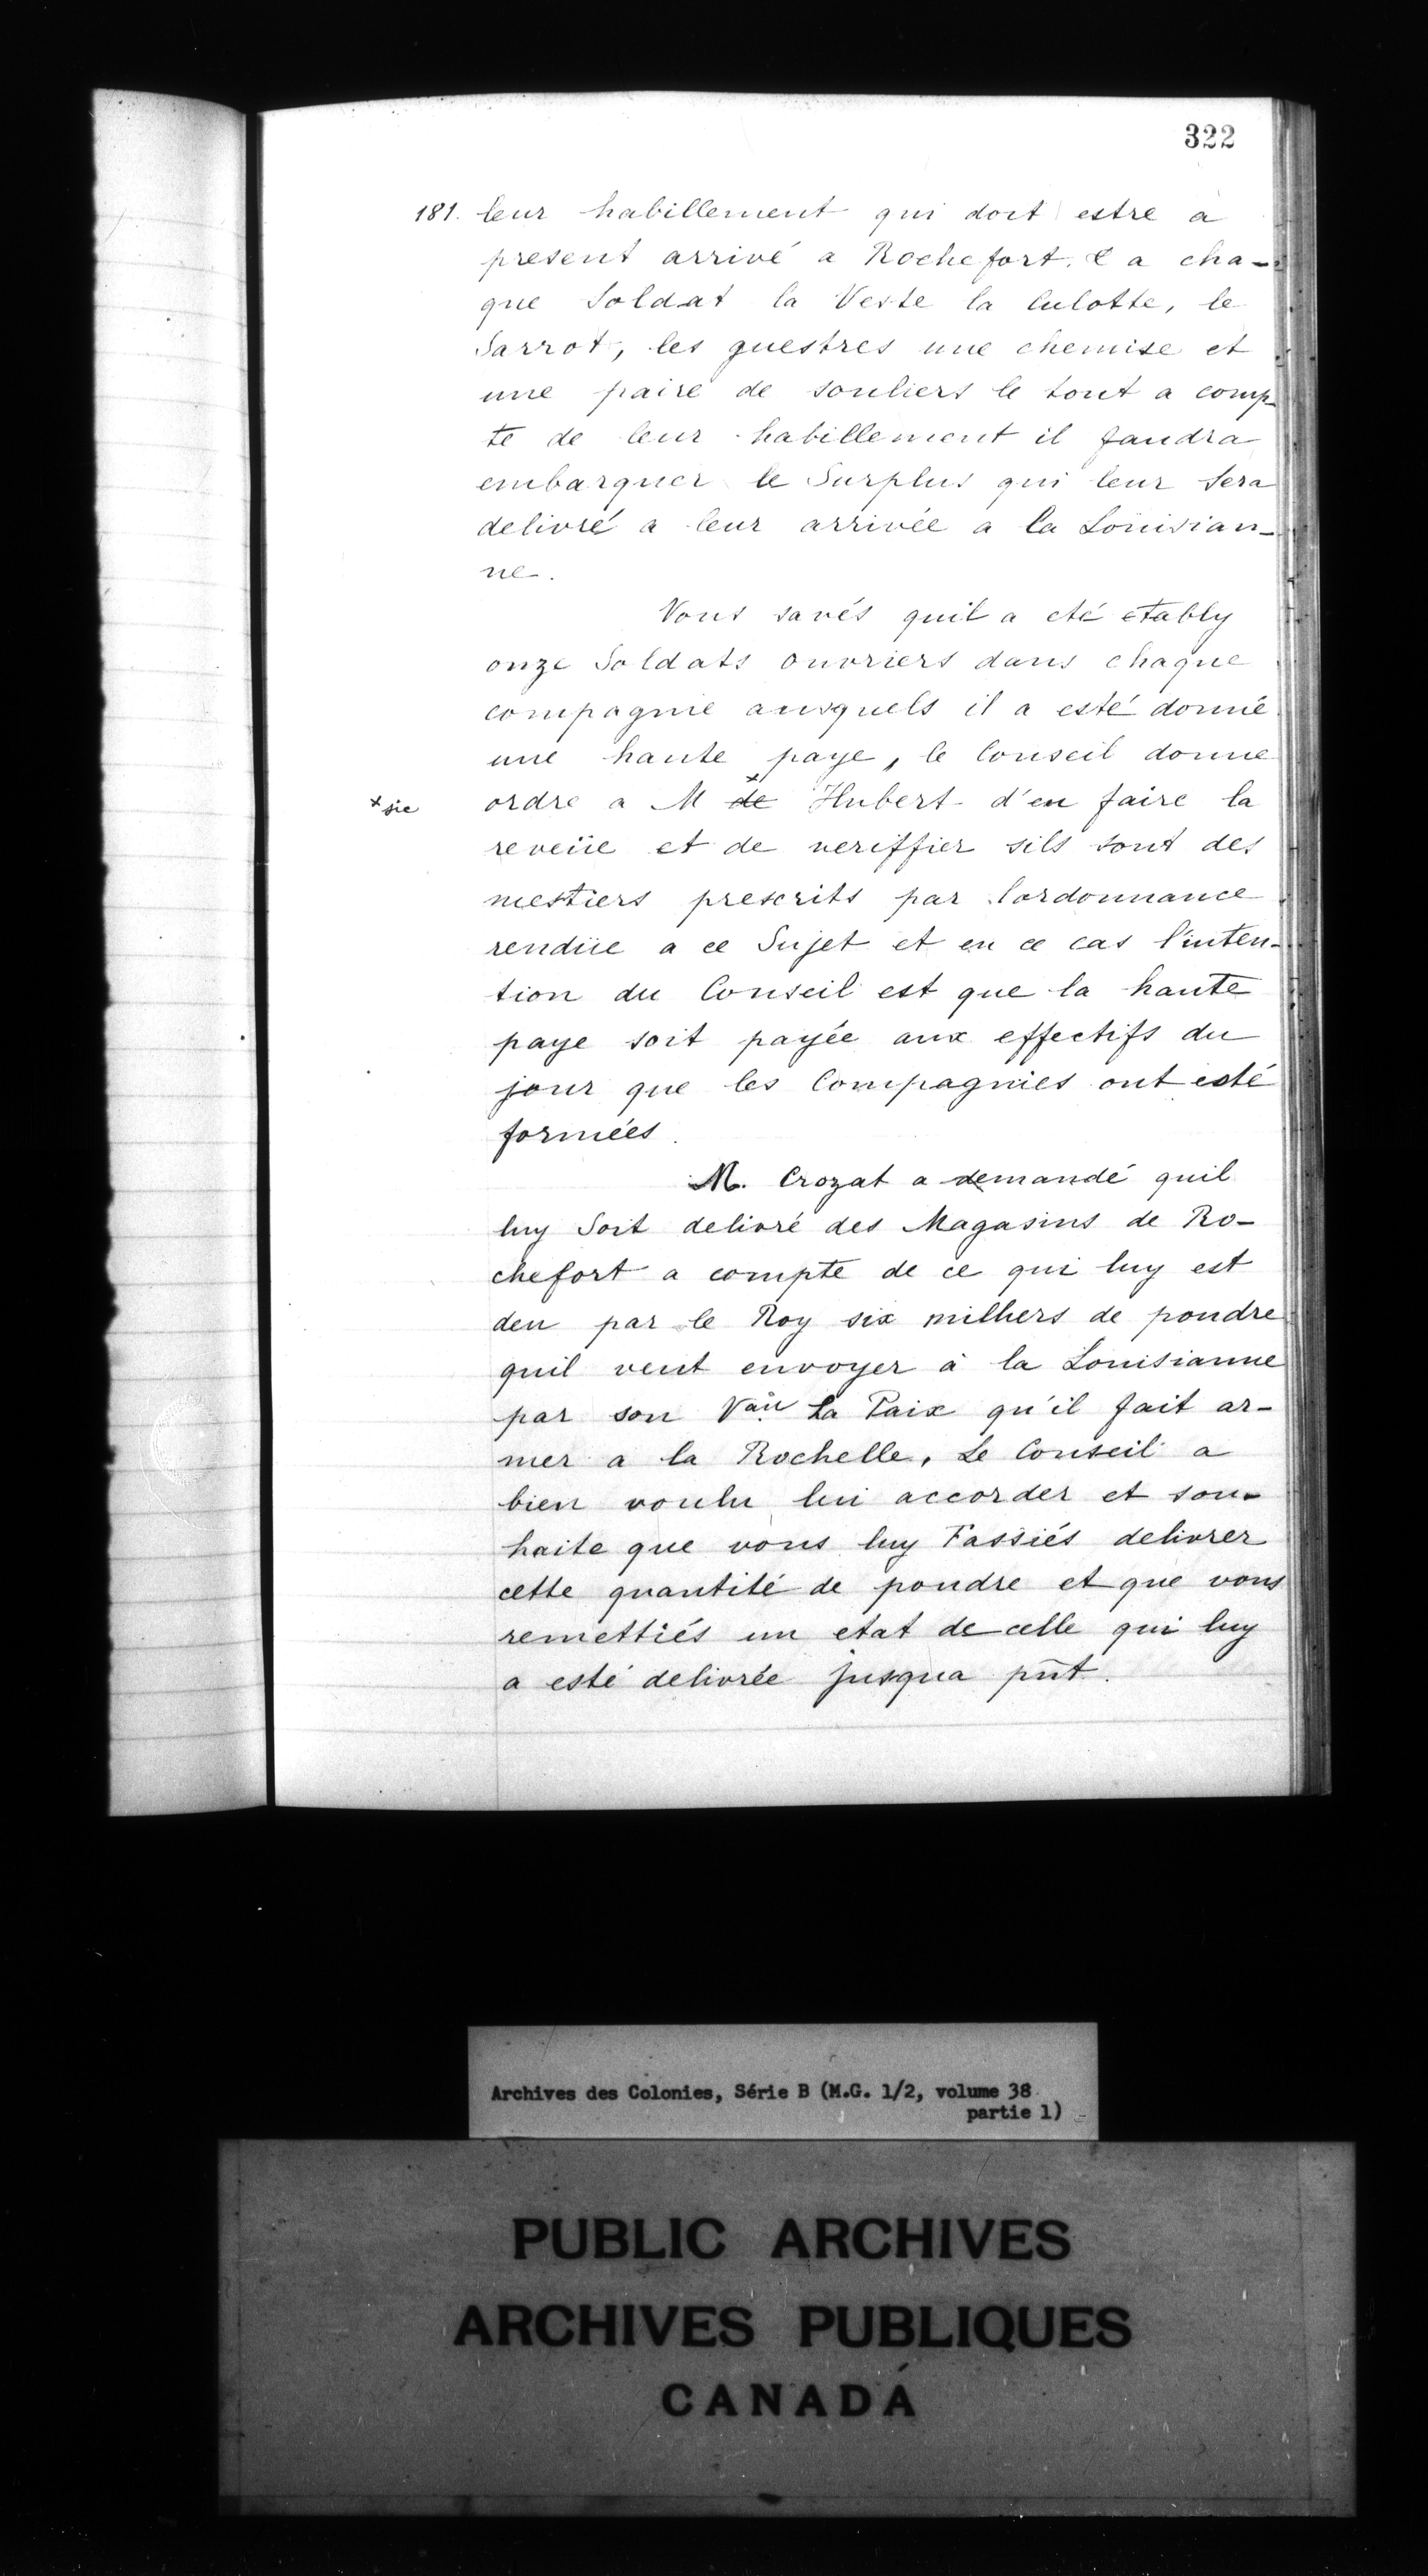 322
181. leur habillement qui doit estre a
present arrivé a Rochefort. & a cha-
que Soldat la Veste la Culotte, le
Sarrot, les guestres une chemise et
une paire de souliers le tout a comp-
te de leur habillement il faudra
embarquer le Surplus qui leur sera
delivré a leur arrivée a la Loüisian-
ne.
Vous savés quil a eté etably
onze Soldats ouvriers dans chaque
compagnie ausquels il a esté donné
une haute paye, le Conseil donne
*sic ordre a M de Hubert d'en faire la
reveüe et de veriffier sils sont des
mestiers prescrits par lordonnance
rendüe a ce Sujet et en ce cas l'inten-
tion du Conseil est que la haute
paye soit payée aux effectifs du
jour que les Compagnies ont esté
formées.
M. Crozat a demandé quil
luy Soit delivré des Magasins de Ro-
chefort a compte de ce qui luy est
deu par le Roy six milliers de poudre
quil veut envoyer à la Louisianne
par son Vau La Paix qu'il fait ar-
mer a la Rochelle. Le Conseil a
bien voulu lui accorder et sou-
haite que vous luy Fassiés delivrer
cette quantité de poudre et que vous
remettiés un etat de celle qui luy
a esté delivrée jusqua pñt.
Archives des Colonies, Série B (M.G. 1/2, volume 38
partie 1)
PUBLIC ARCHIVES
ARCHIVES PUBLIQUES
CANADA